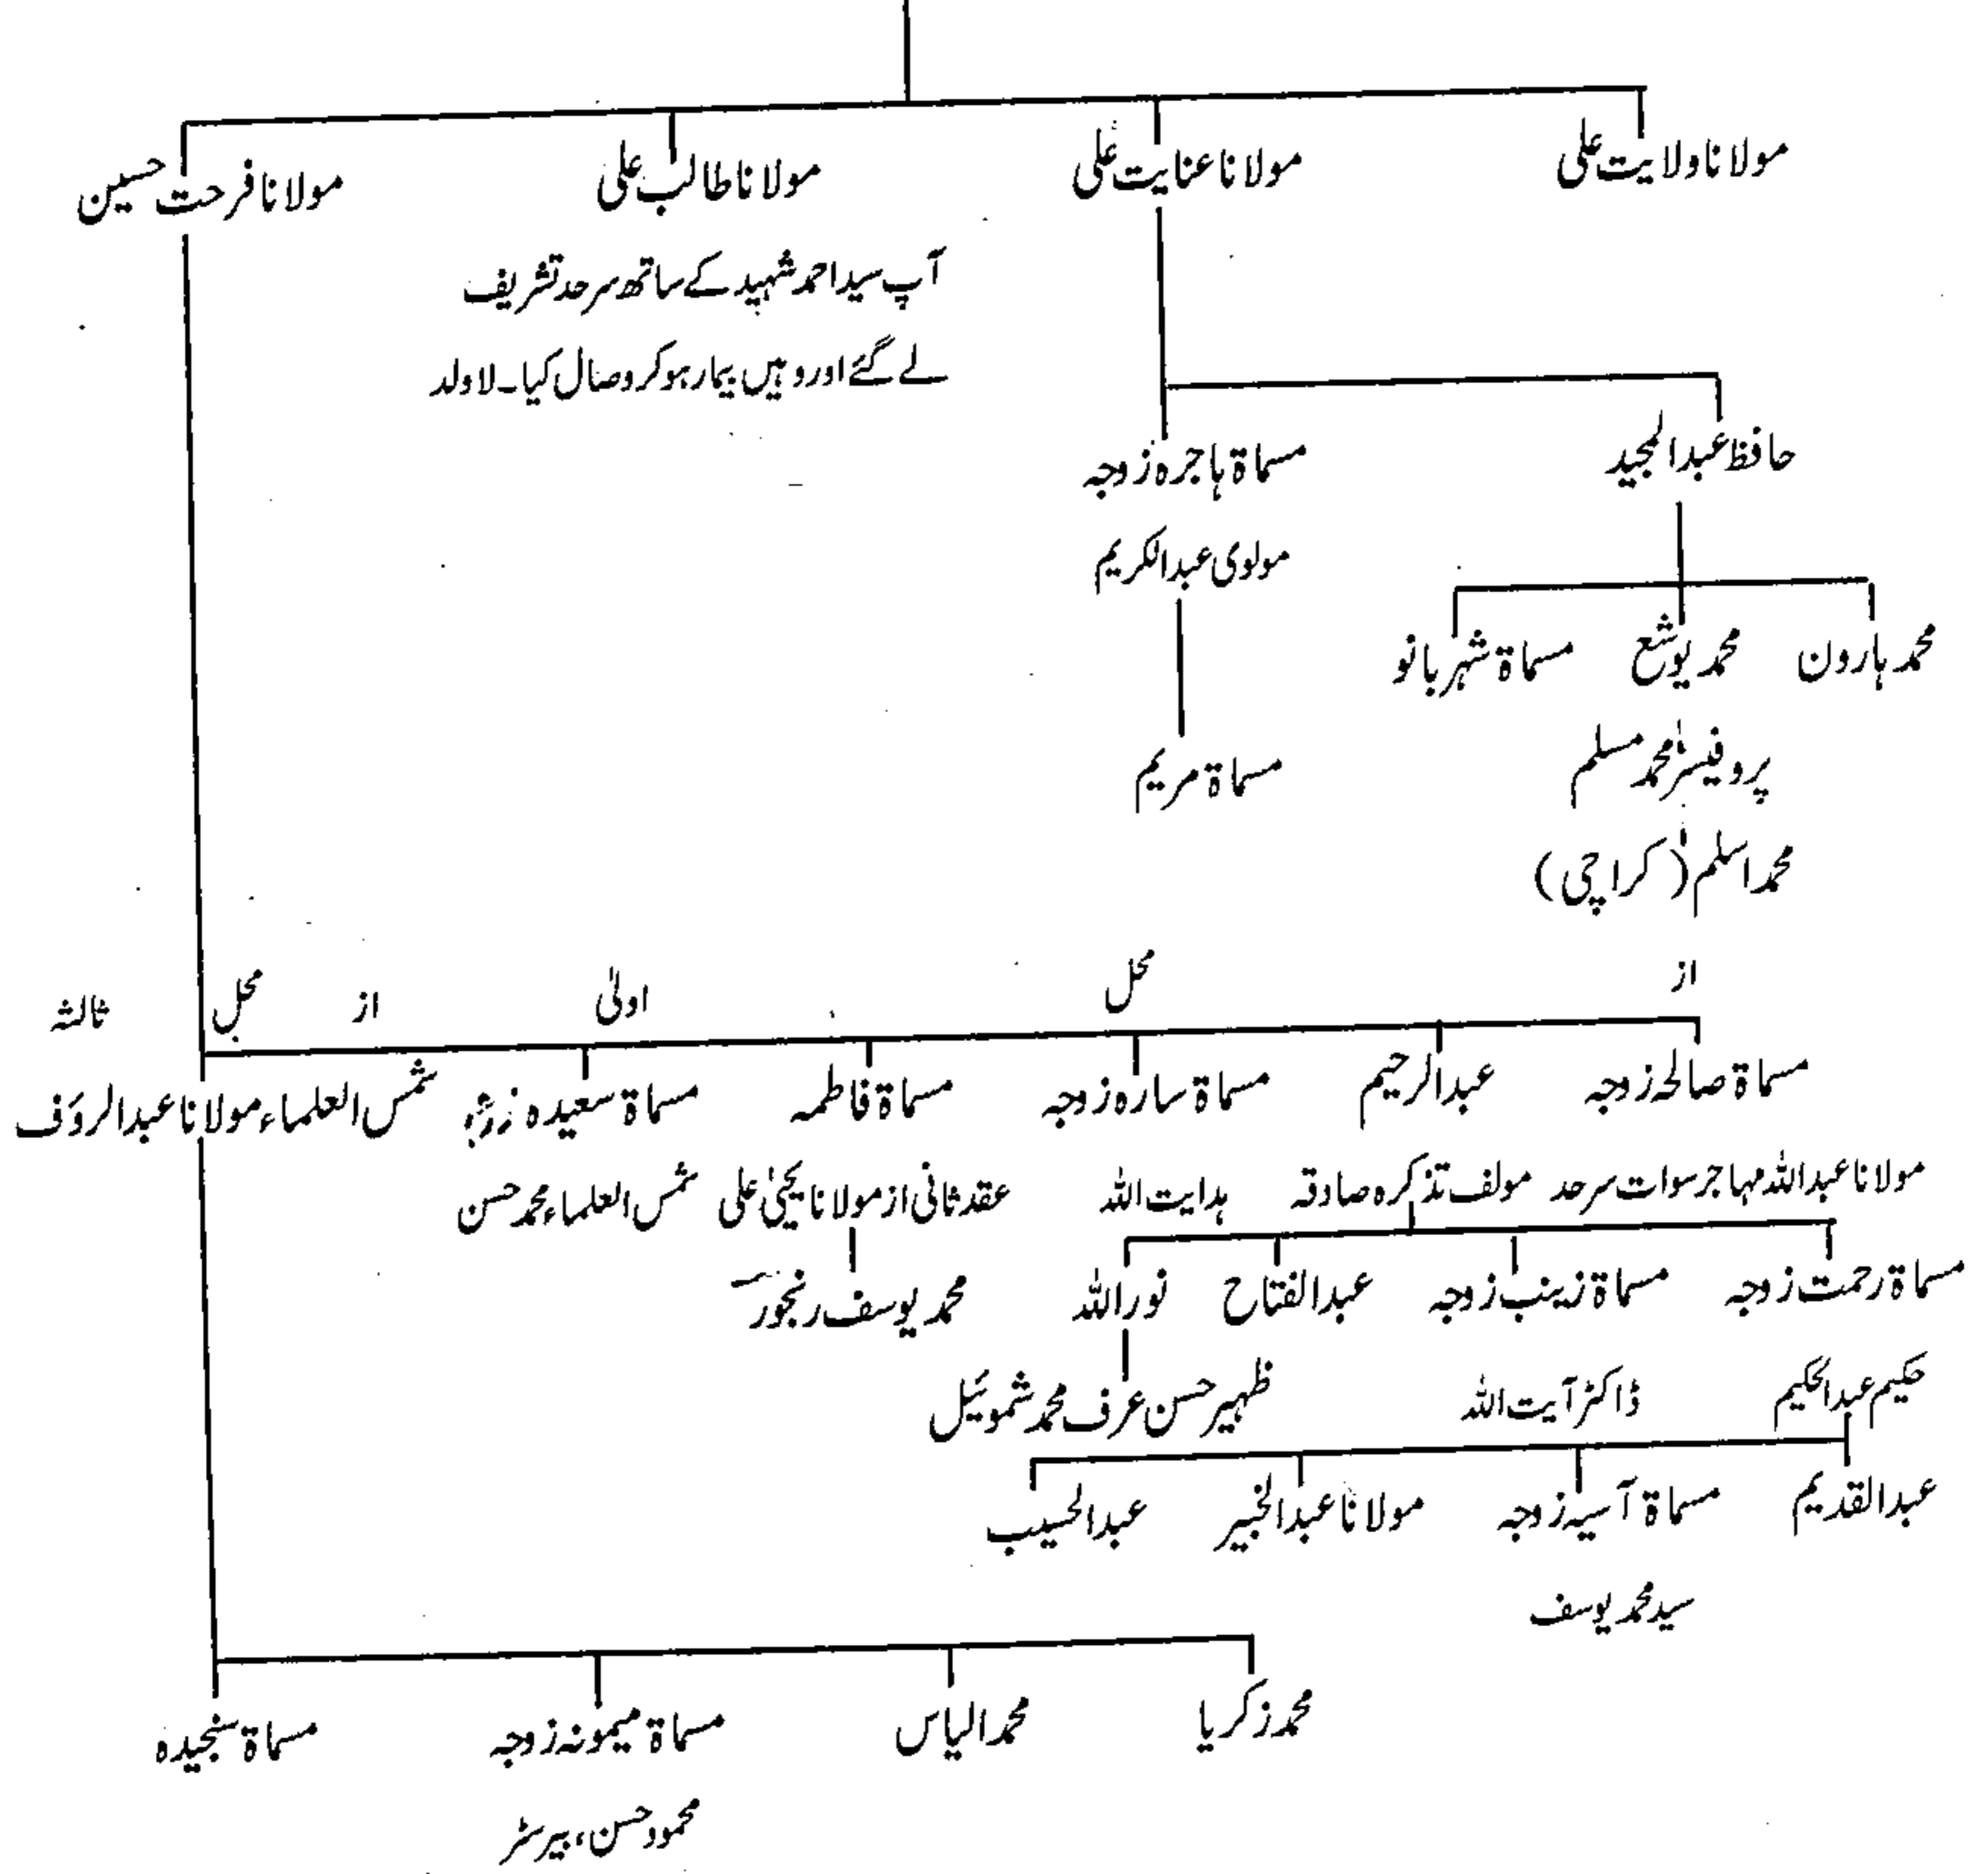 مولانا ولایت علی
مولانا عنایت علی
مولانا طالب علی
مولانا فرحت حسین
آپ سید احمد شہید کے ساتھ سرحد تشریف
لے گئے اور وہیں بیمار ہو کر وصال کیا۔ لاولد
حافظ عبدالمجید
مسماۃ ہاجرہ زوجہ
مولوی عبدالکریم
محمد ہارون
محمد یوشع
مسماۃ شہر بانو
پروفیسر محمد مسلم
مسماۃ مریم
محمد اسلم (کراچی)
از محل اولیٰ
از محل ثالثہ
مسماۃ صالحہ زوجہ
عبدالرحیم
مسماۃ سارہ زوجہ
مسماۃ فاطمہ
مسماۃ سعیدہ زوجہ
شمس العلماء مولانا عبدالرؤف
مولانا عبداللہ مہاجر سوات سرحد
مولف تذکرہ صادقہ
ہدایت اللہ
عقد ثانی از مولانا یحییٰ علی
شمس العلماء محمد حسن
مسماۃ رحمت زوجہ
مسماۃ زینب زوجہ
عبدالفتاح
نور اللہ
محمد یوسف رنجور
حکیم عبدالحکیم
ڈاکٹر آیت اللہ
ظہیر حسن عرف محمد شموئیل
عبدالقدیم
مسماۃ آسیہ زوجہ
مولانا عبدالخبیر
عبدالحسیب
سید محمد یوسف
محمد زکریا
محمد الیاس
مسماۃ میمونہ زوجہ
مسماۃ سنجیدہ
محمود حسن، بیرسٹر